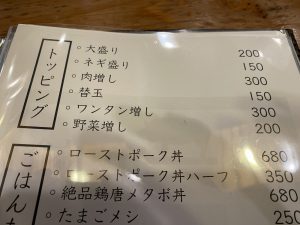 トッピング
○ 大盛り 200
○ ネギ盛り 150
○ 肉増し 300
○ 替玉 150
○ ワンタン増し 300
○ 野菜増し 200
ごはんも
○ ローストポーク丼 680
○ ローストポーク丼ハーフ 350
○ 絶品鶏唐メタボ丼 680
○ たまごメシ 250